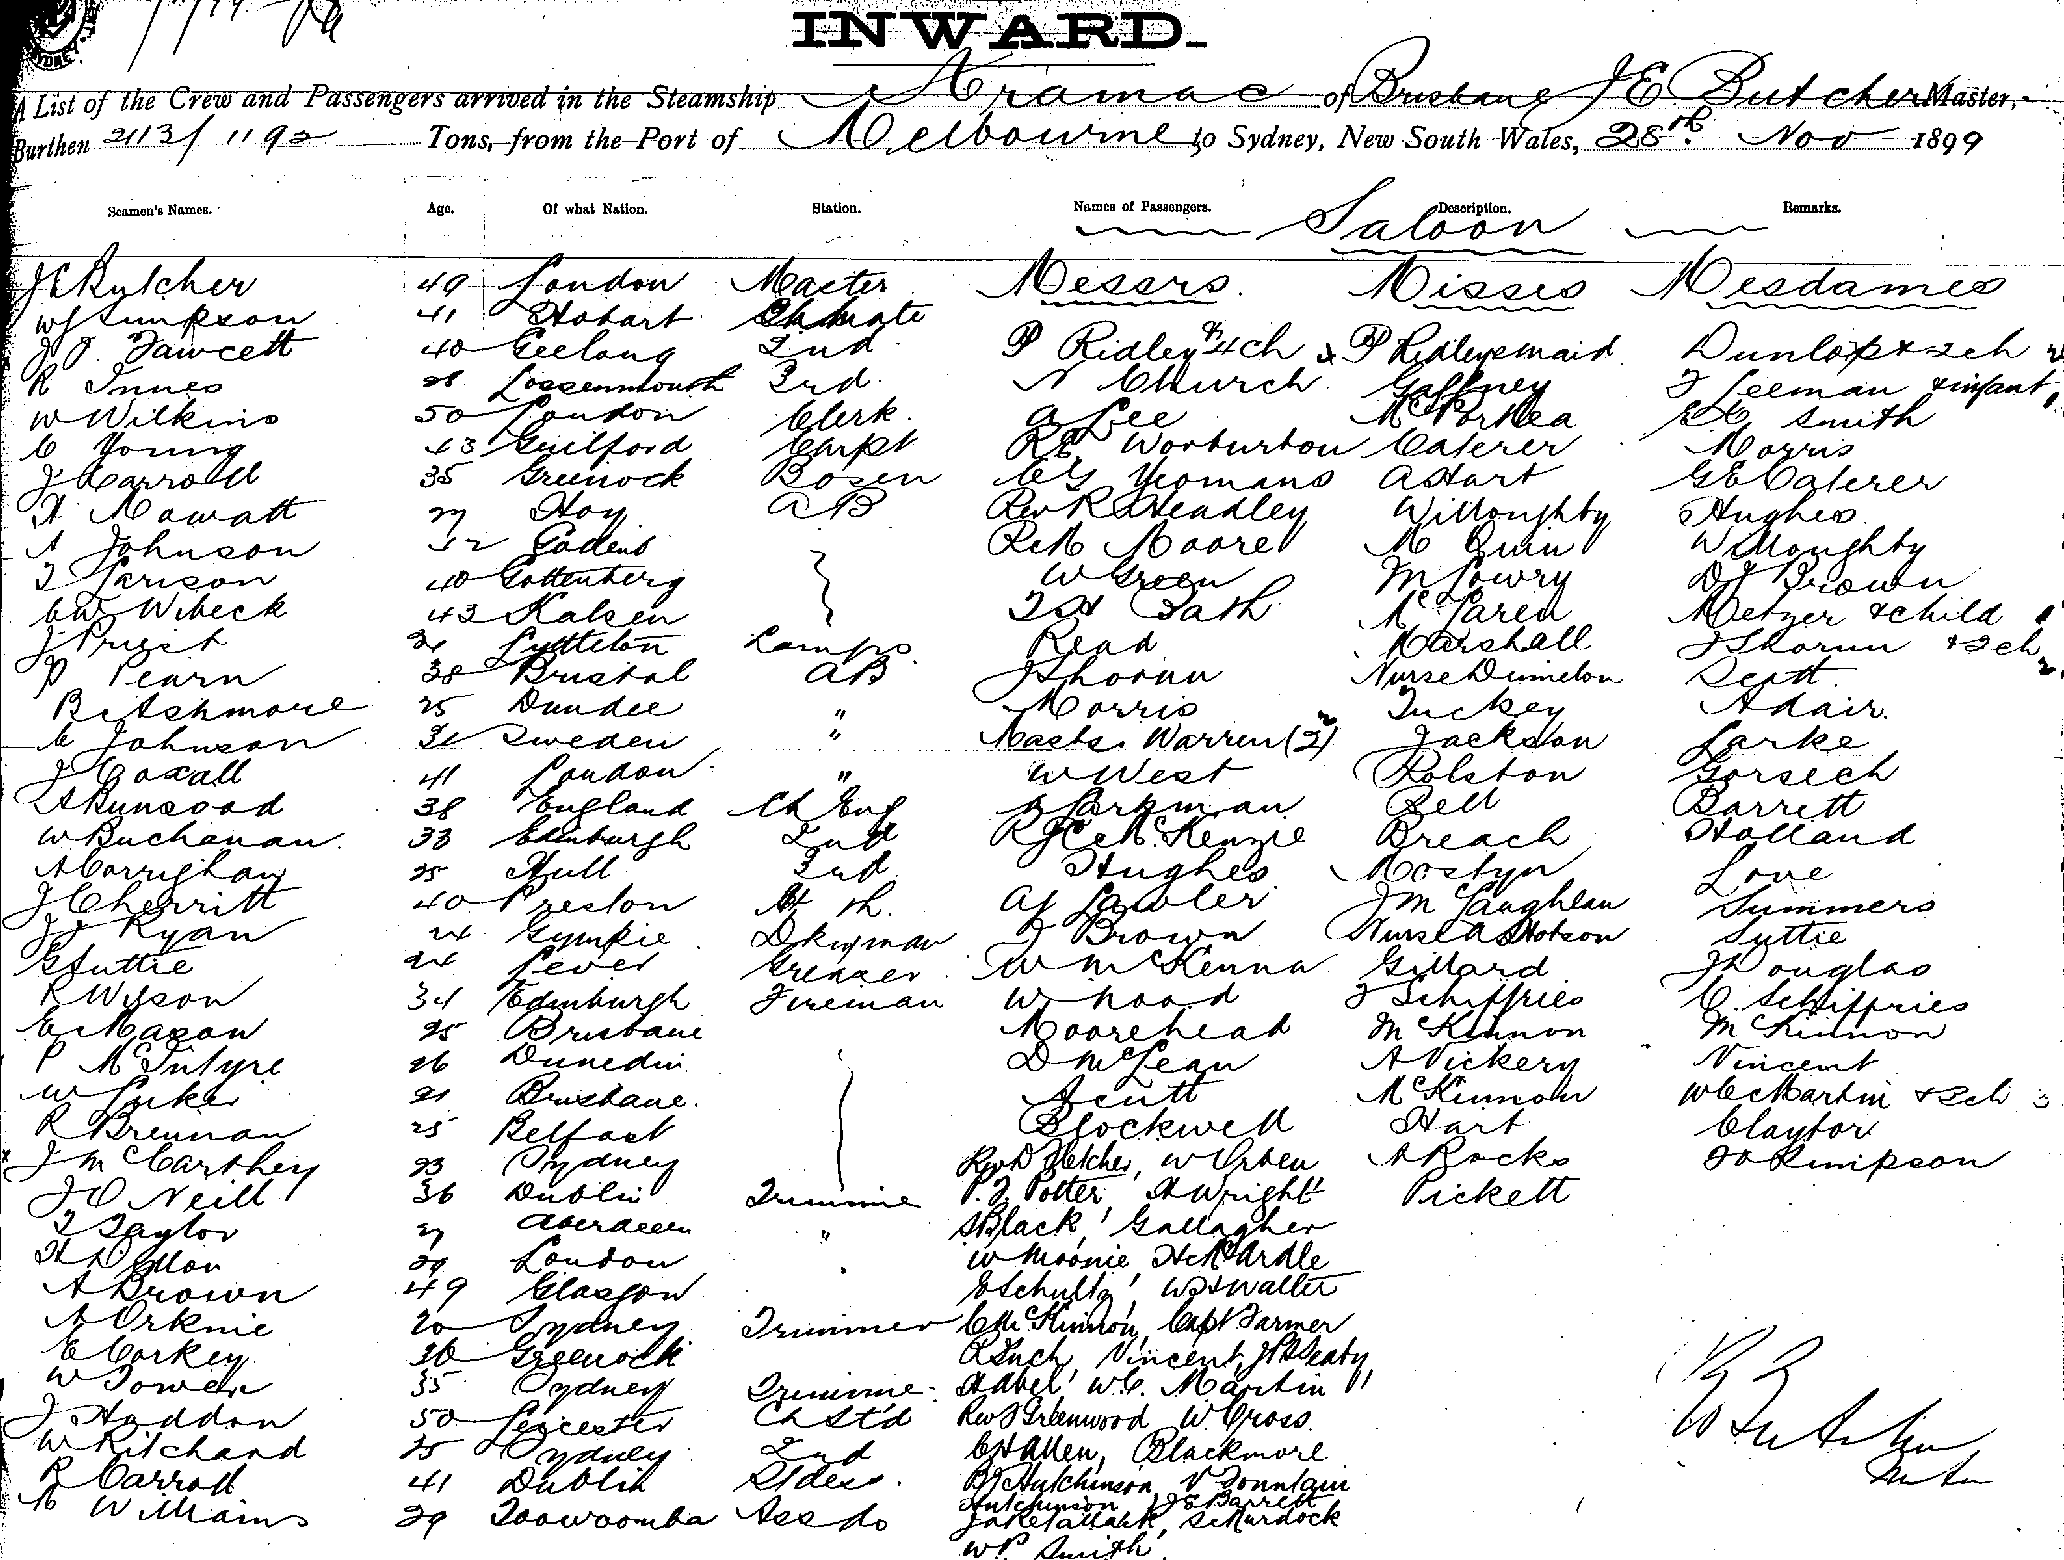 INWARD.
A List of the Crew and Passengers arrived in the Steamship Aramac of Brisbane J E Butcher Master,
Burthen 2113/1192 Tons, from the Port of Melbourne to Sydney, New South Wales, 28th Nov 1899
Seamen's Names. Age. Of what Nation. Station. Names of Passengers. Description. Remarks.
Saloon
J E Butcher 49 London Master Messrs. Misses Mesdames
W J Simpson 41 Hobart Ch Mate
J J Fawcett 40 Geelong 2nd P Ridley & 4 ch P Ridley & maid Dunlop & 2 ch
R Innes 28 Lossenmouth 3rd N Church Gaffney J Leeman & infant
W Wilkins 50 London Clerk. A Lee McPorkea Smith
C Young 43 Guilford Carpt R E Worburton Caterer Morris
J Carroll 35 Greenock Bosen C G Yeomans A Hart G E Caterer
H Mowatt 27 Hoy AB Rev R Headley Willoughby Hughes
A Johnson 42 Moore M Quin Willoughby
T Larison 40 Gottenberg W Green M Lowry D J Brown
C W Wibeck 43 Kalsen McLaren Metzer & child
J Priest Lyttleton Lamps Read Marshall & 2 ch
P Pearn 38 Bristol AB J Shorun Nurse Scott
B Ashmore 25 Dundee " Morris Tuckey Adair.
C Johnson Sweden " Masts. Warren (2) Jackson Larke
J Coxall 41 London " W West Rolston Gorsech
38 England Ch Eng Bell Barrett
W Buchanan. 33 Edinburgh 2nd McKenzie Breach Holland
A Corrighan 25 Hull 3rd Hughes Mostyn Love
J Cherritt 40 Preston 4 th. A J Lawler J McLaughlan Summers
J J Ryan 24 Gympie Dkyman J Brown Nurse A Hobson Suttie
G Suttie 24 Leven Greaser W McKenna Gillard J Douglas
R Wilson 34 Edinburgh Fireman W Wood J Schiffries C Schiffries
E Mason 25 Brisbane Moorehead McKinnon McKinnon
P McIntyre 26 Dunedin D McLean A Vickery Vincent
W Luker 21 Brisbane. Scutt McKinnon W C Martin & 2 ch 3
R Brennan 25 Belfast Blockwell Hart Claytor
J McCarthey 23 Sydney Rev D Fletcher, W Orben A Rocks Simpson
J O'Neill 36 Dublin Trimme P. J. Potter, A Wright Pickett
T Taylor 27 Aberdeen " S Black, Gallagher
H Dillon 29 London W Moonie, H McArdle
A Brown 49 Glasgow E Schultz, W H Walter
A Orknie 20 Sydney Trimmer C McKinnon, Capt Farmer
E Corkey 36 Greenock R Inch, Vincent,
W Power 35 Sydney Trimme. H Abel, W. C. Martin
J Haddon 50 Leicester Ch St'd Rev J Greenwood W Cross.
W Ritchard 25 Sydney 2nd C H Allen, Blackmore
R Carroll 41 Dublin Stdess. B J Hutchinson, V Fountain
Hutchinson J E Barrett
Williams 29 Toowoomba Ass do S Murdock
W P Smith
J E Butcher
Master